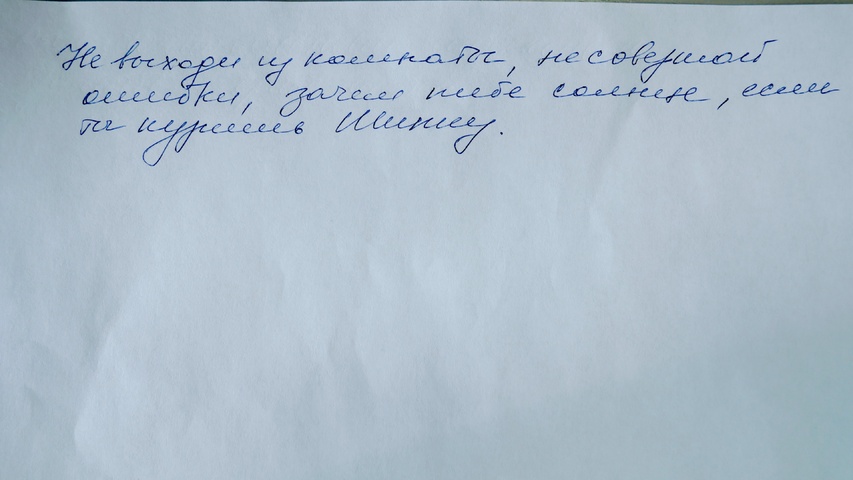 Не выходи из комнаты, не совершай
ошибки, зачем тебе солнце, если
ты куришь Шипку.